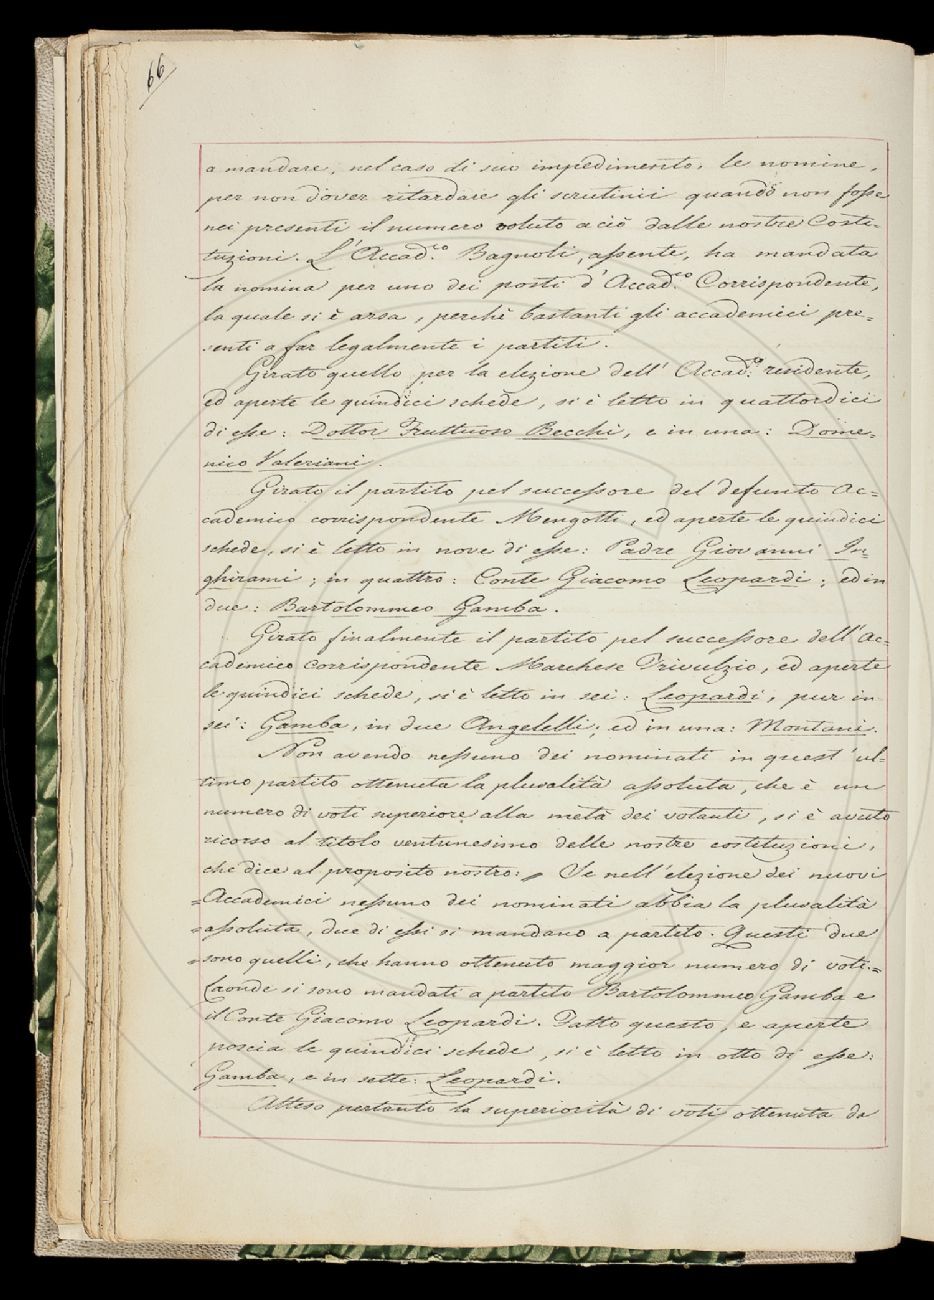 66
a mandare, nel caso di suo impedimento, le nomine,
per non dover ritardare gli scrutinii quando non fosse
nei presenti il numero voluto a ciò dalle nostre Costi=
tuzioni. L'Accad.co Bagnoli, assente, ha mandata
la nomina per uno dei posti d'Accad.co Corrispondente,
la quale si è arsa, perchè bastanti gli accademici pre=
senti a far legalmente i partiti.
Girato quello per la elezione dell'Accad.o residente,
ed aperte le quindici schede, si è letto in quattordici
di esse: Dottor Fruttuoso Becchi, e in una: Dome=
nico Valeriani.
Girato il partito pel successore del defunto Ac=
cademico corrispondente Mengotti, ed aperte le quindici
schede, si è letto in nove di esse: Padre Giovanni In=
ghirami; in quattro: Conte Giacomo Leopardi; ed in
due: Bartolommeo Gamba.
Girato finalmente il partito pel successore dell'Ac=
cademico corrispondente Marchese Trivulzio, ed aperte
le quindici schede, si è letto in sei: Leopardi, pur in
sei: Gamba, in due Angelelli, ed in una: Montani.
Non avendo nessuno dei nominati in quest'ul=
timo partito ottenuta la pluralità assoluta, che è un
numero di voti superiore alla metà dei votanti, si è avuto
ricorso al titolo ventunesimo delle nostre costituzioni,
che dice al proposito nostro: // Se nell'elezione dei nuovi
=Accademici nessuno dei nominati abbia la pluralità
=assoluta, due di essi si mandano a partito. Questi due
=sono quelli, che hanno ottenuto maggior numero di voti.=
Laonde si sono mandati a partito Bartolommeo Gamba e
il Conte Giacomo Leopardi. Fatto questo, e aperte
poscia le quindici schede, si è letto in otto di esse:
Gamba, e in sette: Leopardi.
Atteso pertanto la superiorità di voti ottenuta da